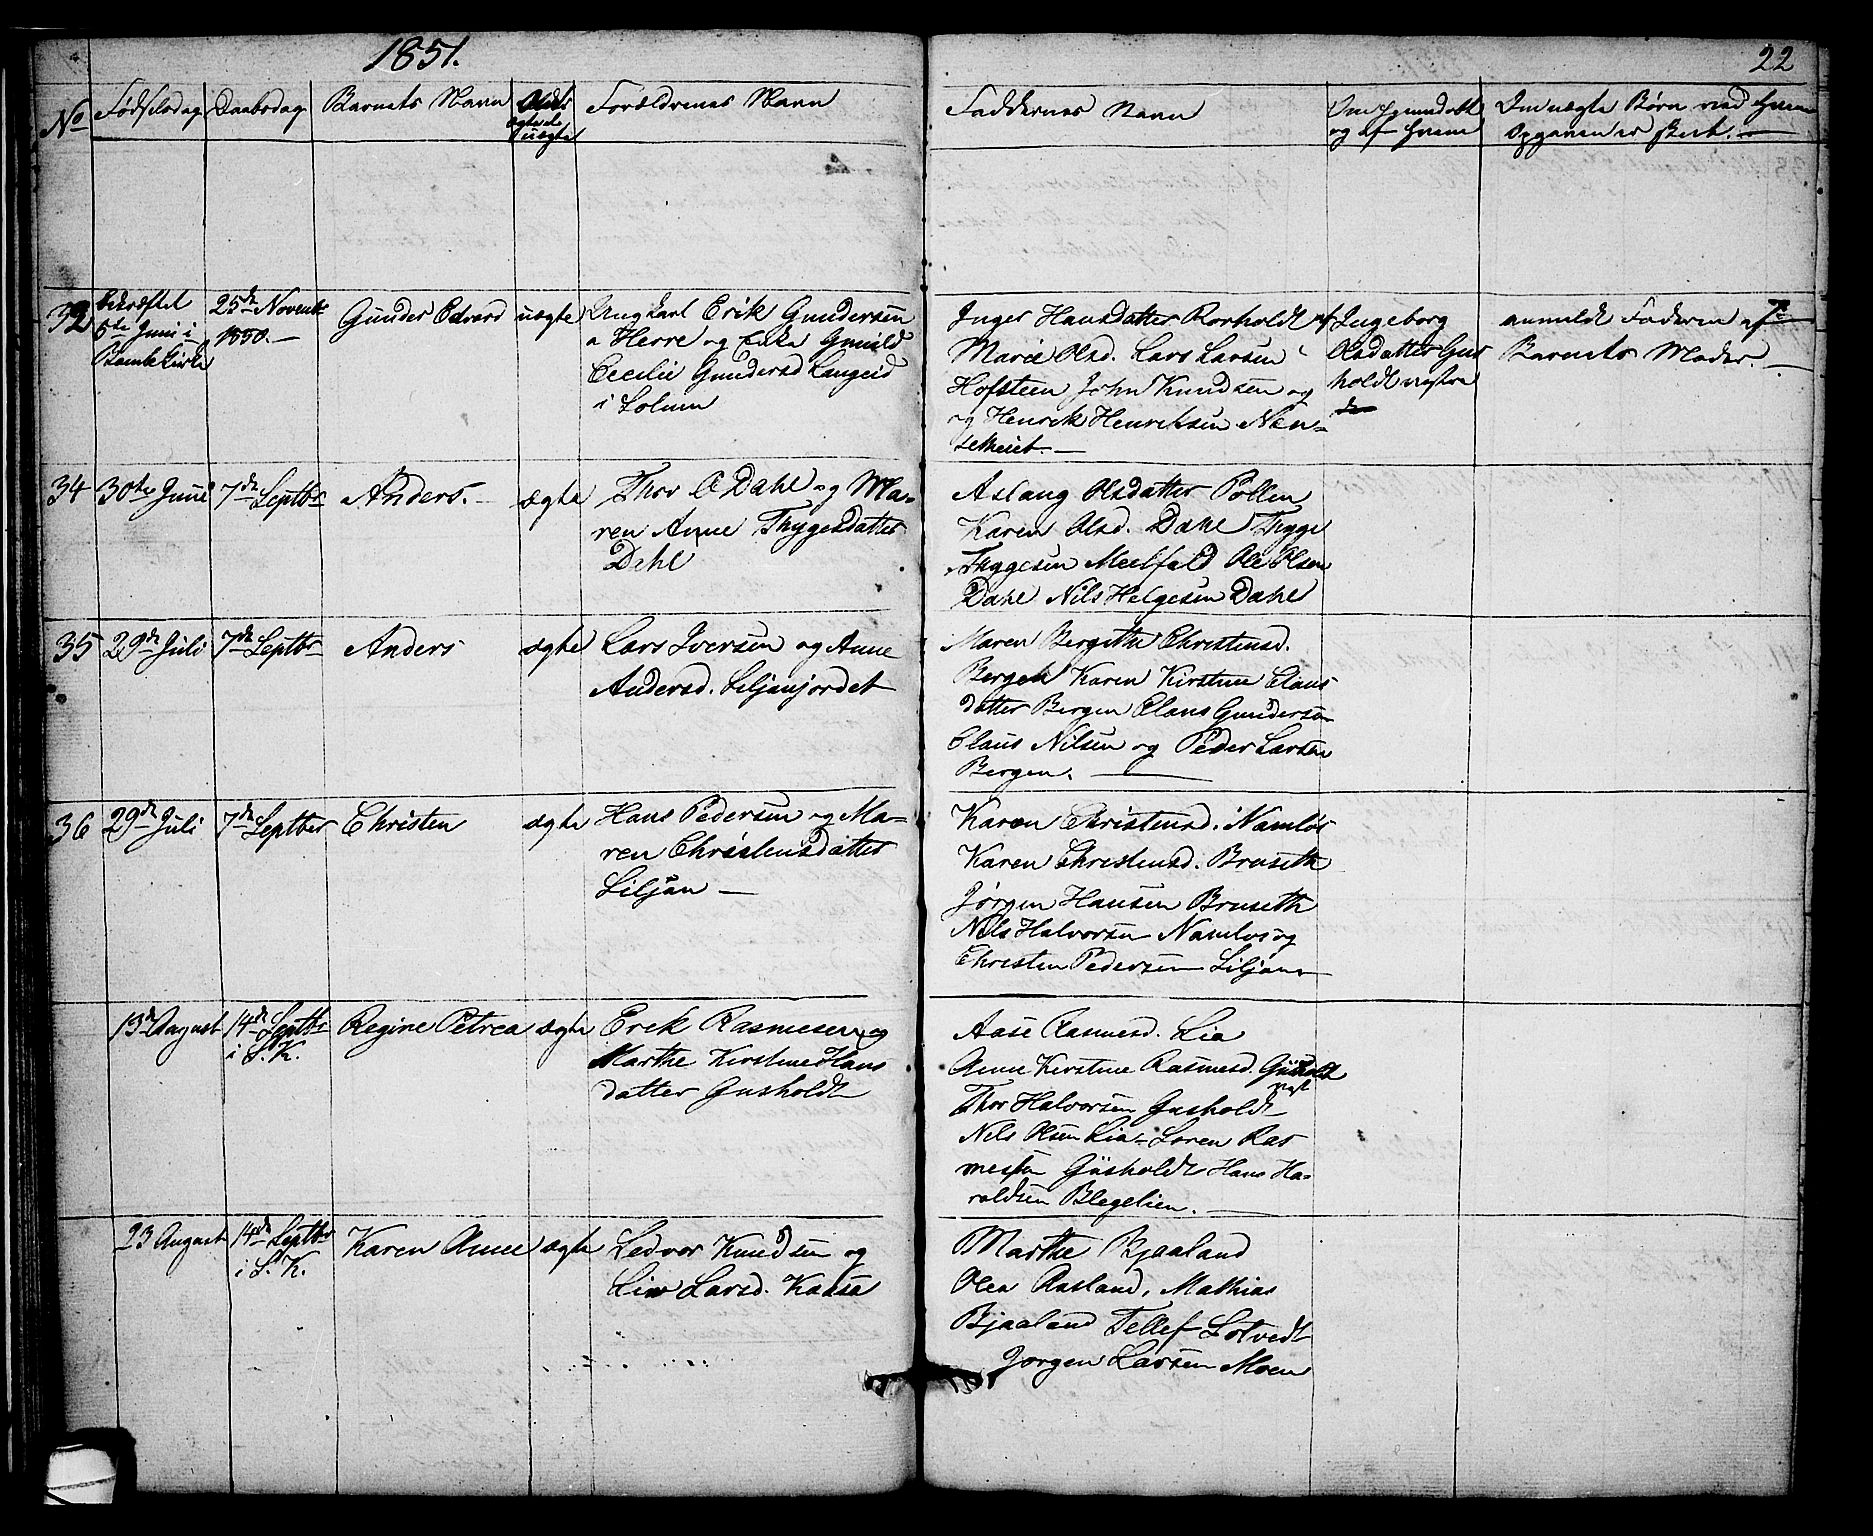 1851.
22
No
Fødselsdag
Daabsdag
Barnets Navn
ægte el. uægte
Forældrenes Navn
Faddernes Navn
Om hjemmedøbt
og af hvem
Om uægte Børn ved hvem
Opgaven er skeet. —
32
bekræftet
5te Juni i
Bamble Kirke
25de Novembr
1850. —
Gunder Edvard
uægte
Ungkarl Erik Gundersen
a Herre og Enke Gunild
Cecilie Gundersd Langeid
i Solum
Inger Hansdatter Rorholdt
Marie Olsd. Lars Larsen
Hofsteen John Knudsen og
og Henrik Henriksen Nen-
seth
af Ingeborg
Olsdatter Gus
holdt vestre
anmeldt Faderen af
Barnets Moder. —
34
30te Juni
7de Septbr
Anders. —
ægte
Thov O Dahl og Ma-
ren Anne Thygesdatter
Dahl
Aslaug Olsdatter Pollen
Karen Olsd. Dahl Thyge
Thygesen Meelfald Ole Olsen
Dahl Nils Helgesen Dahl
35
29de Juli
7de Septbr
Anders
ægte
Lars Iversen og Anne
Andersd. Liljanjordet
Maren Bergithe Christensd.
Bergen Karen Kirstine Claus
datter Bergen Claus Gundersen
Claus Nilsen og Peder Larsen
Bergen. —
36
29de Juli
7de Septber
Christen
ægte
Hans Pedersen og Ma-
ren Christensdatter
Liljan —
Karen Christensd. Namløs
Karen Christensd. Bruseth
Jørgen Hansen Bruseth
Nils Halvorsen Namløs og
Christen Pedersen Liljan
13de August
14de Septbr
i S. K.
Regine Petrea
ægte
Erek Rasmesen og
Marthe Kirstine Hans
datter Gusholdt
Aase Rasmesd. Lia
Anne Kirstine Rasmesd. Gusholdt
Thor Halvorsen Gusholdt
Nils Olsen Lia Soren Ras
mesen Gusholdt Hans Ha-
raldsen Blegelien. —
23 August
14de Septbr
i S. K.
Karen Anne
ægte
Ledvor Knudsen og
Live Larsd. Kaasa
Marthe Bjaaland
Olea Aasland, Mathias
Bjaaland Tellef Lotvedt
Jorgen Larsen Moen